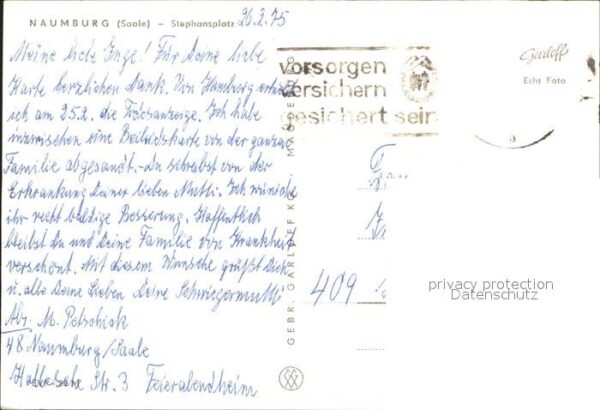 NAUMBURG (Saale) – Stephansplatz 26.2.75
Meine liebe Inge! Für Deine liebe
Karte herzlichen Dank. Von Hamburg erhielt
ich am 25.2. die Todesanzeige. Ich habe
inzwischen eine Beileidskarte von der ganzen
Familie abgesandt. – Du schriebst von der
Erkrankung Deiner lieben Mutti. Ich wünsche
ihr recht baldige Besserung. Hoffentlich
bleibst Du und Deine Familie von Krankheit
verschont. Mit diesem Wunsche grüßt Dich
u. alle Deine Lieben Deine Schwiegermutti
Abs. M. Petschick
48 Naumburg/Saale
Str. 3 Feierabendheim
GEBR. GARLOFF KG, MAGDEBURG
vorsorgen
versichern
gesichert sein
a
Garloff
Echt Foto
409
privacy protection
Datenschutz